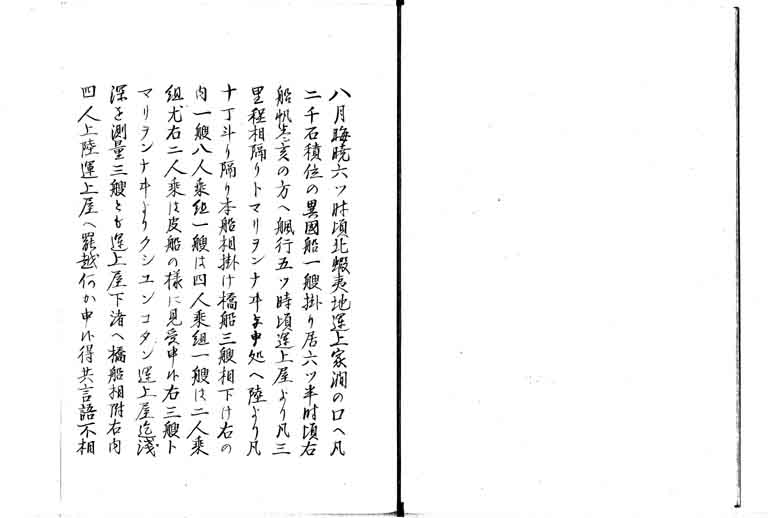 八月晦暁六ツ時頃北蝦夷地運上家澗の口へ凡
二千石積位の異國船一艘掛り居六ツ半時頃右
船帆ニ亥の方へ颿行五ツ時頃運上屋より凡三
里程相隔りトマリヲンナヰと申処へ陸より凡
十丁斗り隔り本船相掛け橋船三艘相下け右の
内一艘八人乗組一艘は四人乗組一艘は二人乗
組尤右二人乗は皮船の様に見受申候右三艘ト
マリヲンナヰよりクシユンコタン運上屋迄淺
深を測量三艘とも運上屋下渚へ橋船相附右内
四人上陸運上屋へ罷越何か申候得共言語不相